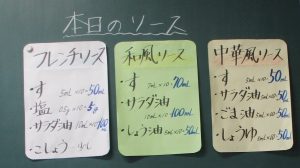 本日のソース
フレンチソース
・す 5mL×10=50mL
・塩 0.5g×10=5g
・サラダ油 10mL×10=100mL
・こしょう 少し
和風ソース
・す 7mL×10=70mL
・サラダ油 10mL×10=100mL
・しょうゆ 5mL×10=50mL
中華風ソース
・す 5mL×10=50mL
・サラダ油 5mL×10=50mL
・ごま油 5mL×10=50mL
・しょうゆ 5mL×10=50mL